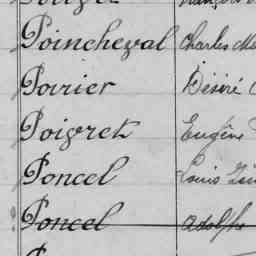 Poincheval Charles
Poirier Désiré
Poivret Eugène
Poncel Louis
Poncel Adolphe